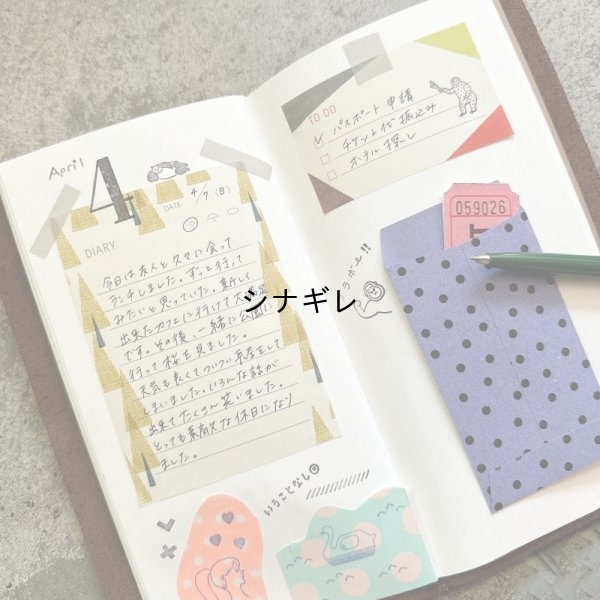 April
4
DATE 4/7 (日)
DIARY
今日は友人と久々に会って
ランチしました。ずっと行って
みたいと思っていた、新しく
出来たカフェに行けて大満足
です。その後、一緒に公園に
行って桜を見ました。
天気も良くてついつい長居をして
しまいました。いろんな話が
出来てたくさん笑いました。
とっても素敵な休日になり
ました。
いうことなし
TO DO
パスポート申請
チケット代振込み
ホテル探し
059026
シナギレ